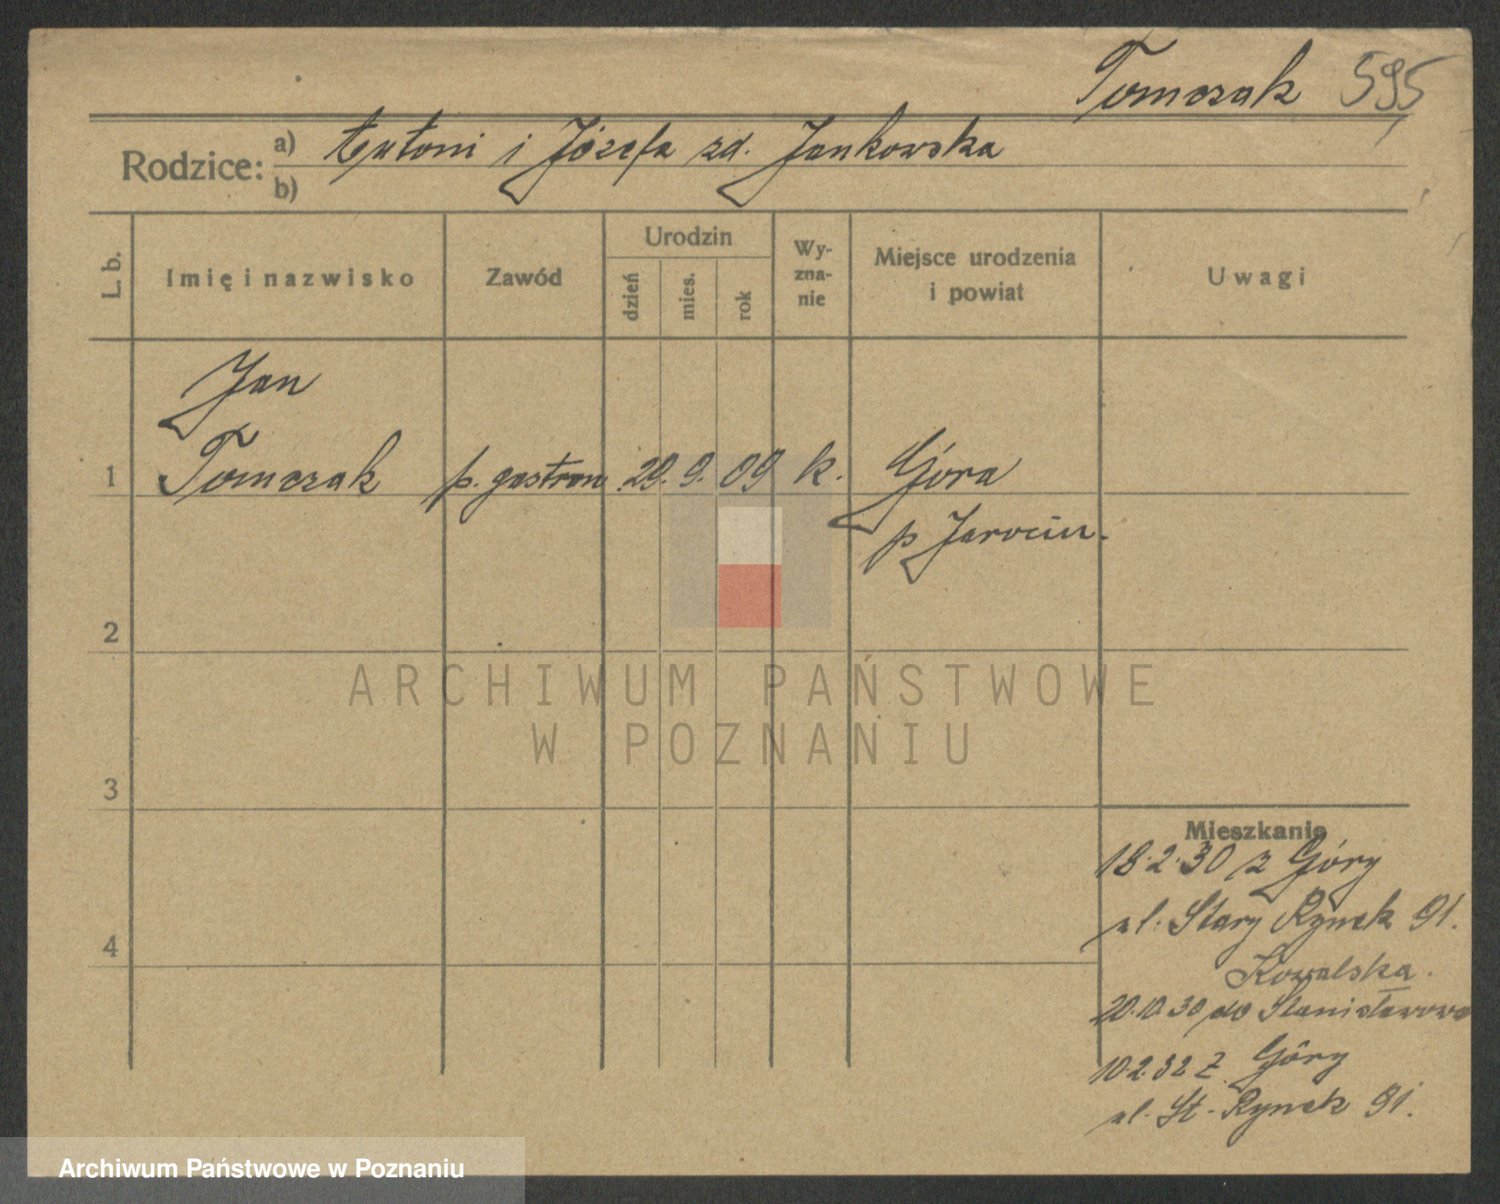 Tomczak 595
Rodzice: a) Antoni i Józefa zd. Jankowska
b)
L. b.
Imię i nazwisko
Zawód
Urodzin
dzień
mies.
rok
Wy-
zna-
nie
Miejsce urodzenia
i powiat
Uwagi
Jan
1 Tomczak p. gastron. 29. 9. 09 k. Góra
p Jarocin.
2
3
4
ARCHIWUM PAŃSTWOWE
W POZNANIU
Mieszkanie
18.2.30 z Góry
ul. Stary Rynek 91.
Kowalska.
20.10.30 do Stanisławowa
10 2.32 z Góry
ul. St. Rynek 91.
Archiwum Państwowe w Poznaniu